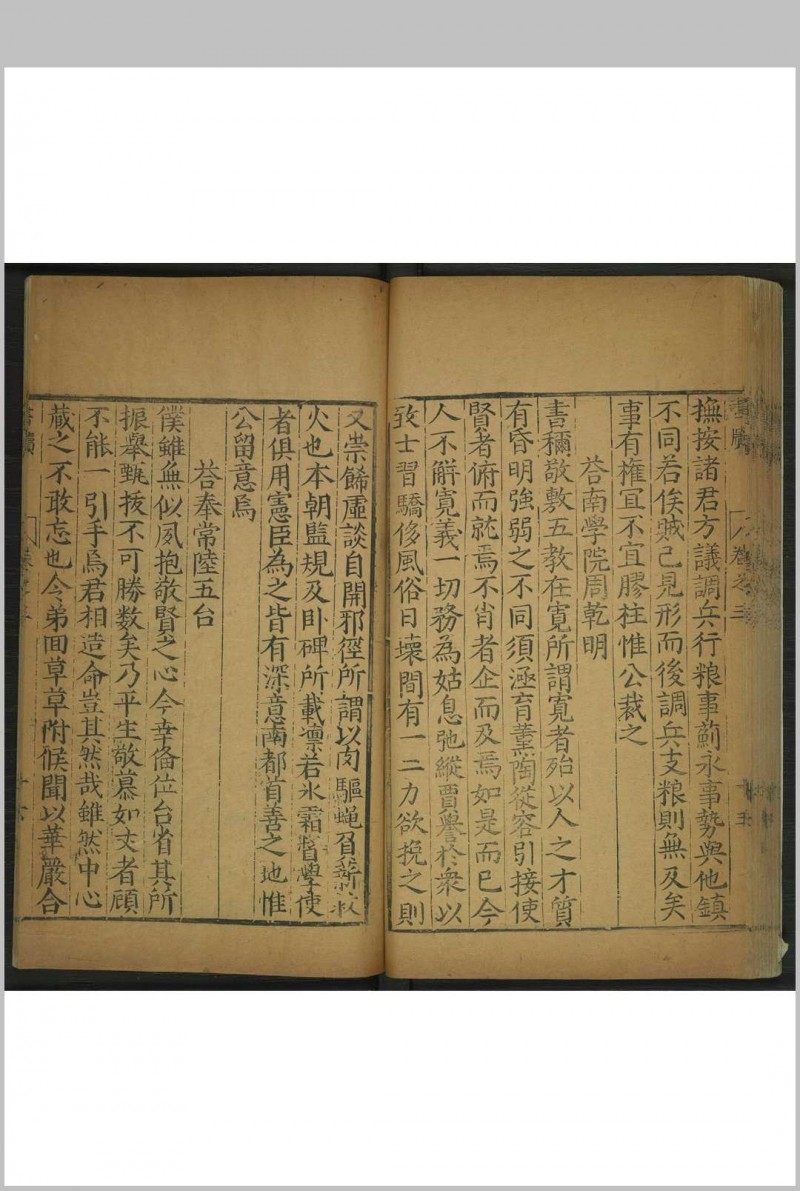 撫按諸君方議調兵行粮事薊永事勢與他鎮
不同若俟賊已見形而後調兵支粮則無及矣
事有權冝不宜膠柱惟公裁之
荅南學院周乾明
書稱敬敷五教在寛所謂寛者殆以人之才質
有昏明強弱之不同須涵育薫陶從容引接使
賢者俯而就焉不肖者企而及焉如是而已今
人不解寛義一切務為姑息弛縱賈譽於衆以
致士習驕侈風俗日壊間有一二力欲挽之則
又崇餙虛談自開邪徑所謂以肉驅蝇負薪救
火也本朝監規及卧碑所載凛若氷霜督學使
者俱用憲臣為之皆有深意南都首善之地惟
公留意焉
荅奉常陸五台
僕雖無似夙抱敬賢之心今幸俻位台省其所
振舉甄拔不可勝数矣乃平生敬慕如丈者顧
不能一引手焉君相造命豈其然哉雖然中心
蔵之不敢忘也令弟囬草草附候聞以華嚴合